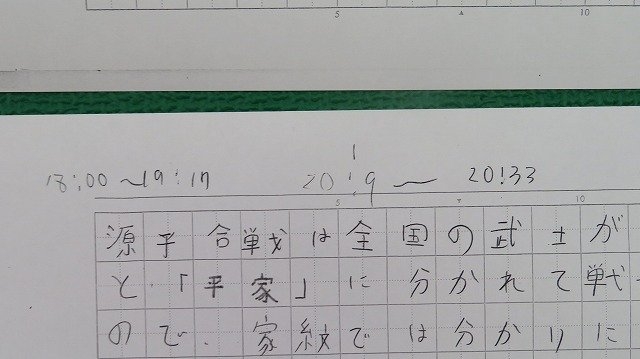 5 10
18:00 〜19:17 20:19 〜 20:33
5 10
源平合戦は全国の武士が
と「平家」に分かれて戦
ので、家紋では分かりに